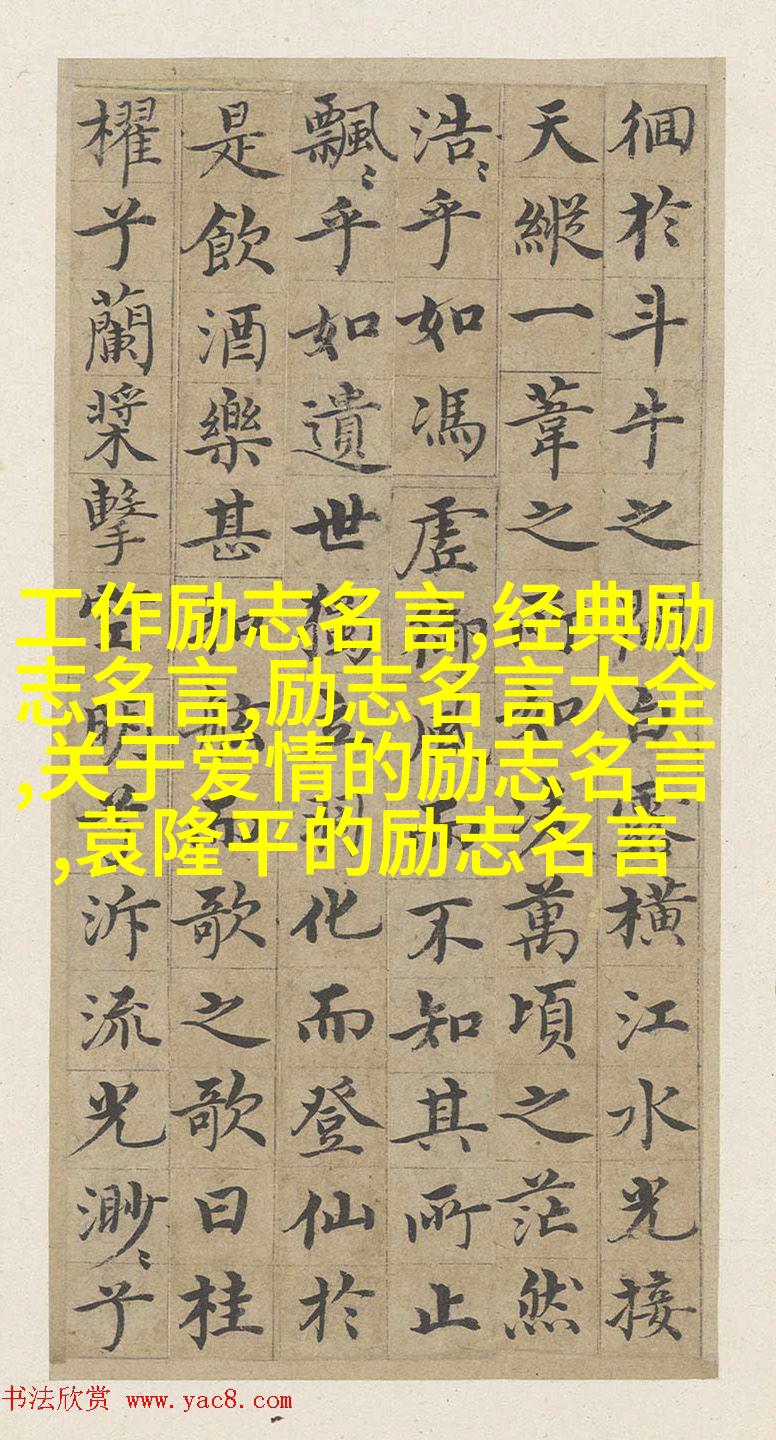 徊於斗牛之間白露橫江水光接
天縱一葦之所如凌萬頃之茫然
浩〻乎如馮虛御風而不知其所止
飄〻乎如遺世獨立羽化而登仙於
是飲酒樂甚扣舷而歌之歌曰桂
櫂兮蘭槳擊空明兮泝流光渺〻兮
工作励志名言,经典励
志名言,励志名言大全
,关于爱情的励志名言
,袁隆平的励志名言
书法欣赏 www.yac8.com